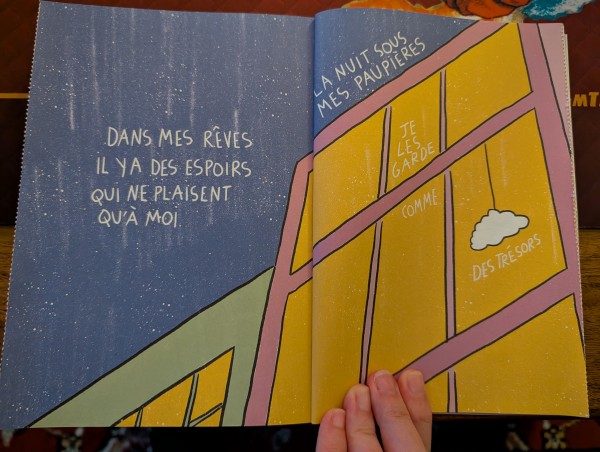 DANS MES RÊVES
IL Y A DES ESPOIRS
QUI NE PLAISENT
QU'À MOI.
LA NUIT SOUS
MES PAUPIÈRES
JE
LES
GARDE
COMME
DES TRÉSORS